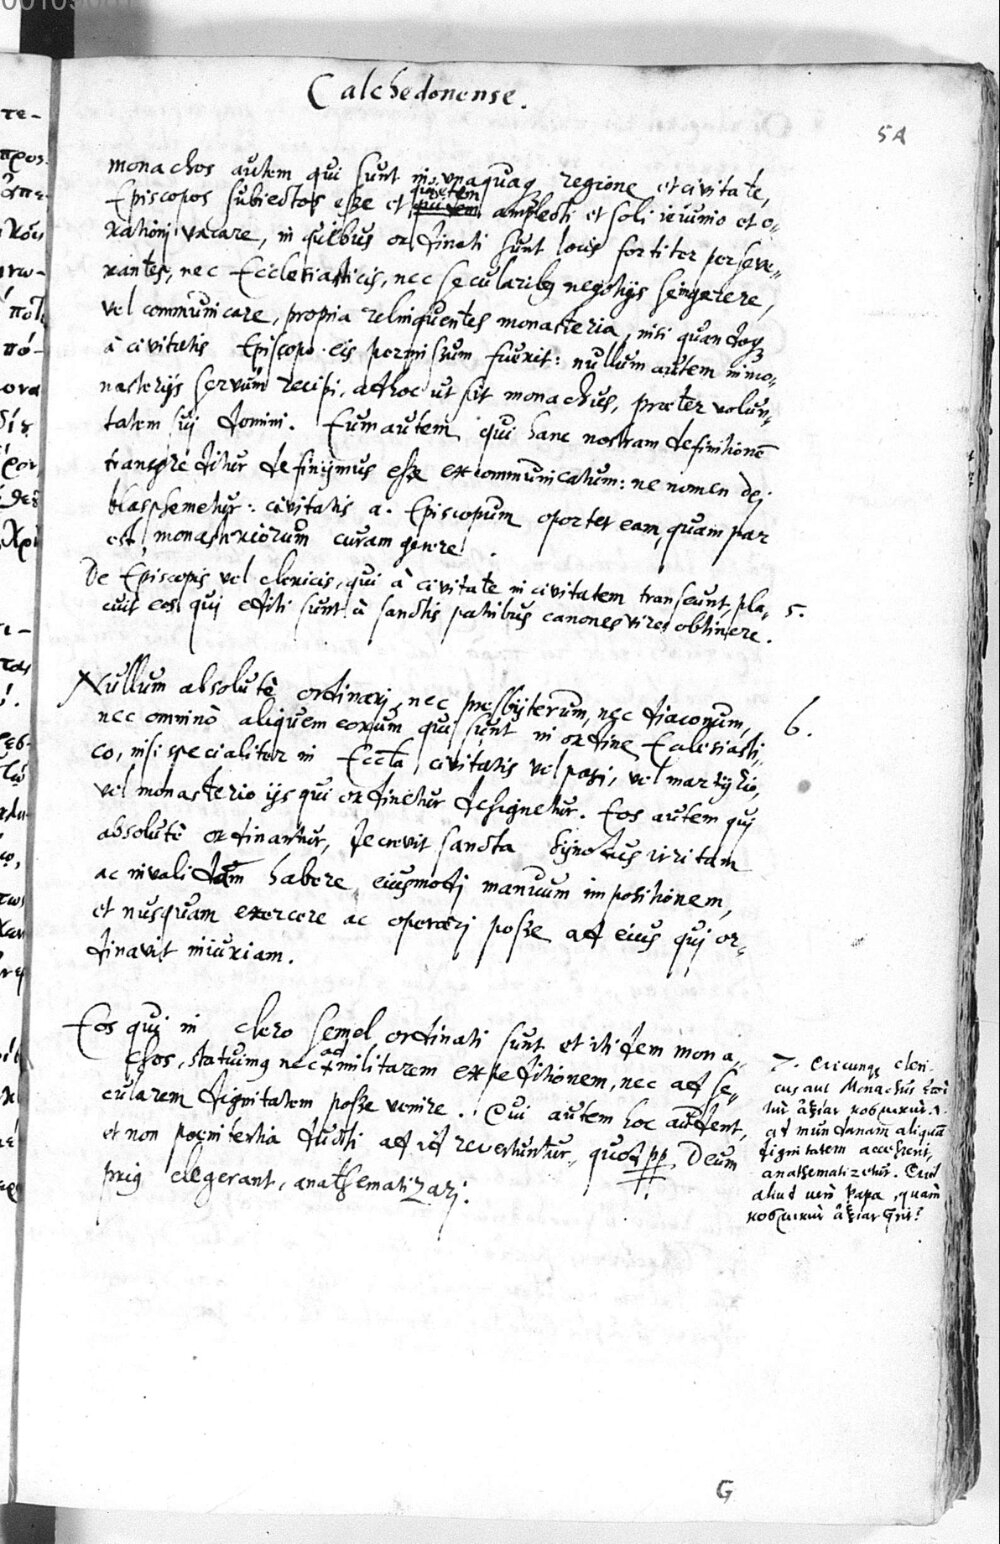 Calchedonense.
54
monachos autem qui sunt in unaquaq regione et civitate,
Episcopos subiectos esse et quietem amplecti et soli ieiunio et o-
rationi vacare, in quibus ordinati sunt locis fortiter perseve-
rantes, nec Ecclesiasticis, nec secularibq negotijs se ingerere,
vel communicare, propria relinquentes monasteria, nisi quandoq
à civitatis Episcopo eis permissum fuerit: nullum autem in mo-
nasterijs servum recipi, ad hoc ut sit monachus, praeter volun-
tatem sui domini. Eum autem qui hanc nostram definitionē
transgreditur definijmus esse excommunicatum: ne nomen dej
blasphemetur: civitatis a. Episcopum oportet eam, quam par
est, monasteriorum curam gerere.
De Episcopis vel clericis, qui à civitate in civitatem transeunt, pla-
cuit eos qui editi sunt à sanctis patribus canones vires obtinere.
5.
Nullum absolutè ordinarj, nec presbijterum, nec diaconum,
nec omninò aliquem eorum qui sunt in ordine Ecclesiasti-
co, nisi specialiter in Eccła civitatis vel pagi, vel martyrio,
vel monasterio ijs qui ordinetur designetur. Eos autem qui
absolutè ordinantur, decrevit sancta Synodus irritam
ac invalidam habere eiusmodj manuum impositionem,
et nusquam exercere ac operarj posse ad eius quj or-
dinavit iniuriam.
6.
Eos qui in clero semel ordinati sunt et itidem mona-
chos, statuimq nec ad militarem expeditionem, nec ad se-
cularem dignitatem posse venire. Qui autem hoc audent,
et non poenitentia ducti ad id revertuntur, quod pp. Deum
priq elegerant, anathematizarj.
7. Quicunq cleri-
cus aut Monachus
ἀξίαν κοσμικὴν
ad mundanam aliquā
dignitatem accesserit,
anathematizetur. Quid
aliud verò Papa, quàm
κοσμικὴν ἀξίαν
G